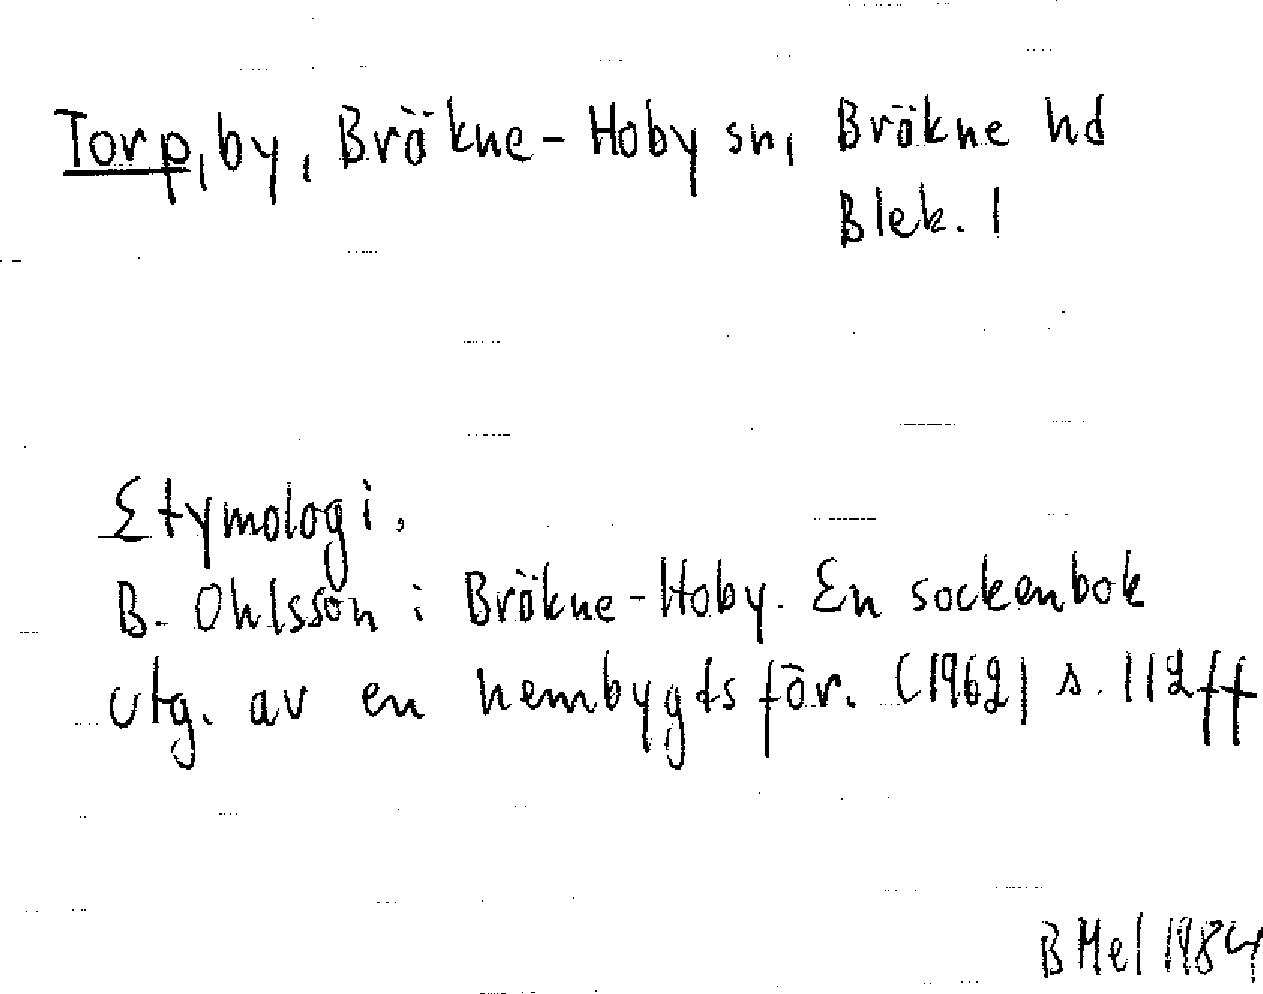 Torp, by, Bräkne-Hoby sn, Bräkne hd
Blek. l
Etymologi.
B. Ohlsson i Bräkne-Hoby. En sockenbok
utg. av en hembygdsför. (1962) s. 112ff
B Mel 1984